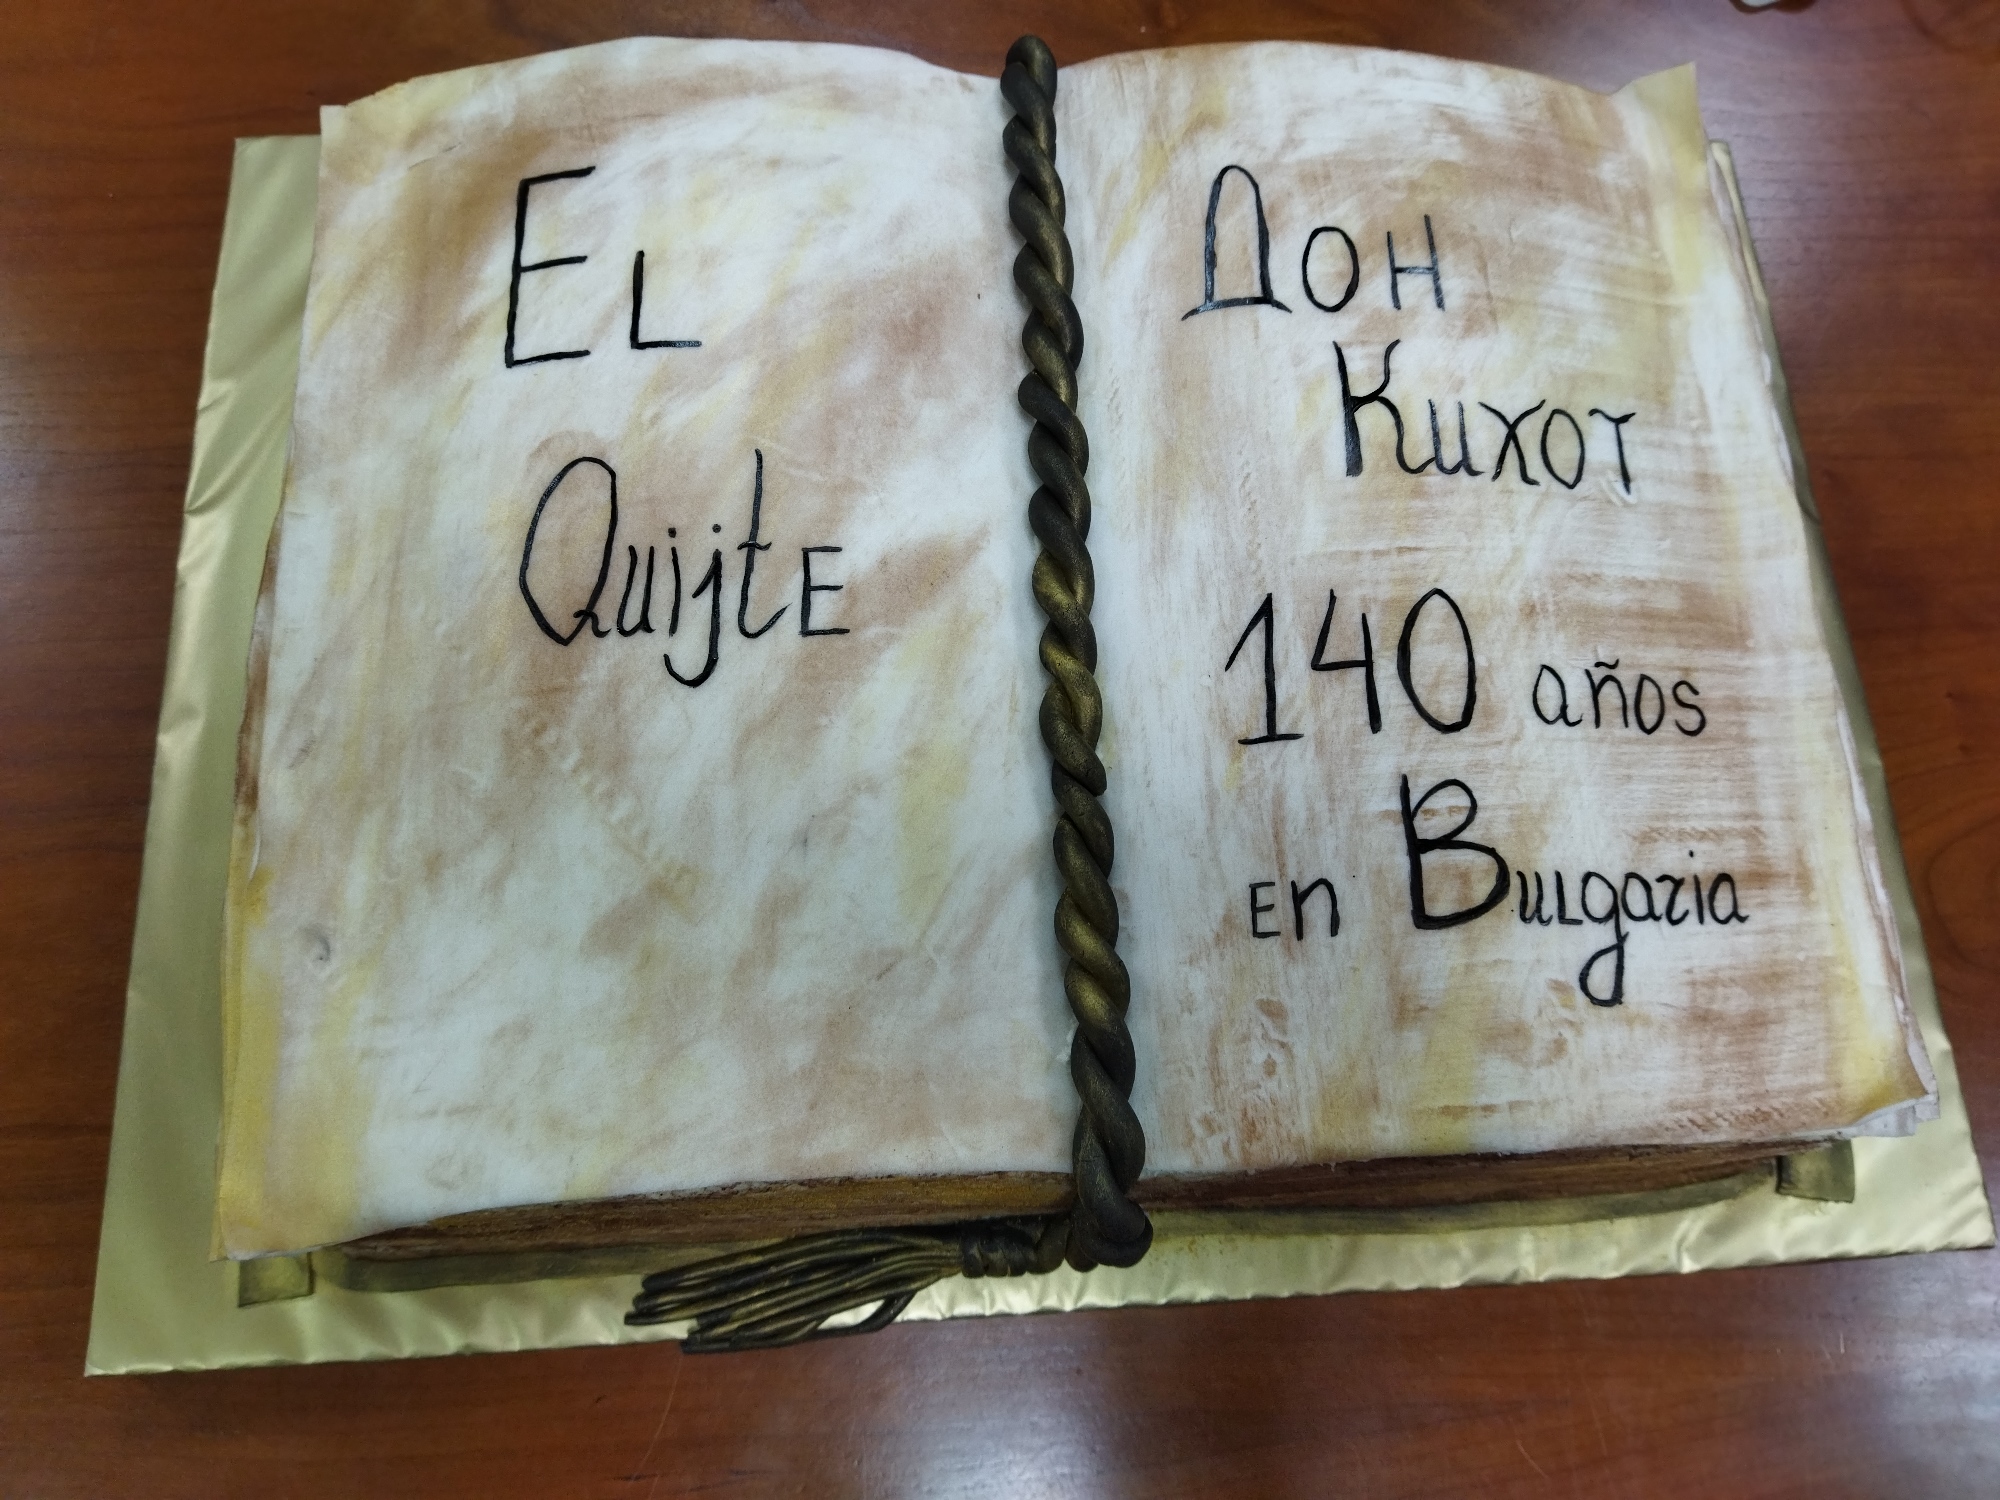 EL
QuijtE
Дон
Кихот
140 años
En BuLgaria